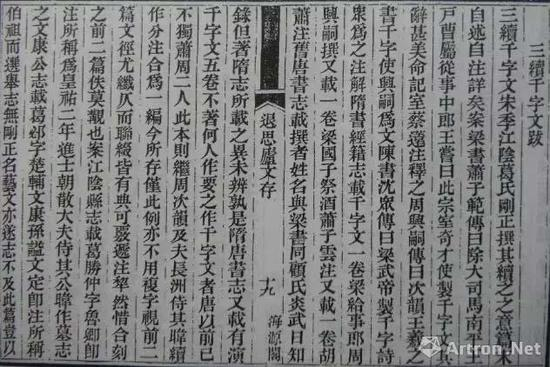 三續千字文跋
三續千字文宋季江陰葛氏剛正撰其續之之意篇末
自述自注詳矣案梁書蕭子範傳曰除大司馬南平王
戶曹屬從事中郎王嘗曰此宗室奇才使製千字文其
辭甚美命記室蔡薳注釋之周興嗣傳曰次韻王羲之
書千字使興嗣爲文陳書沈衆傳曰梁武帝製千字詩
衆爲之注解隋書經籍志載千字文一卷梁給事郎周
興嗣撰又載一卷梁國子祭酒蕭子雲注又載一卷胡
蕭注舊唐書志載撰者姓名與梁書同顧氏炎武日知
退思廬文存
十九
海源閣
錄但著隋志所載之異未辨孰是隋唐書志又載有演
千字文五卷不著何人作要之作千字文者唐以前已
不獨蕭周二人此本則繼周次韻及夫長洲侍其暐續
作分注合爲一編今所存僅此例亦不用複字視前二
篇文徑尤纖仄而聯綴皆有典可覈遞注犂然惜合刻
之前二篇佚莫觀也案江陰縣志載葛勝仲字魯卿卽
注所稱爲皇祐二年進士朝散大夫侍其公暐作墓志
之文康公志載葛郯字楚輔文康孫諡文定卽注所稱
伯祖而選舉志無剛正名藝文亦遂志不及此篇豈以
Artron.Net